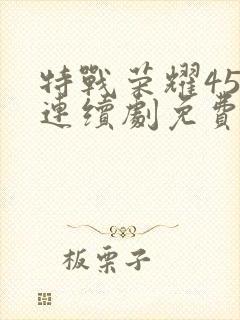 特戰荣耀45
連續劇免費
板栗子